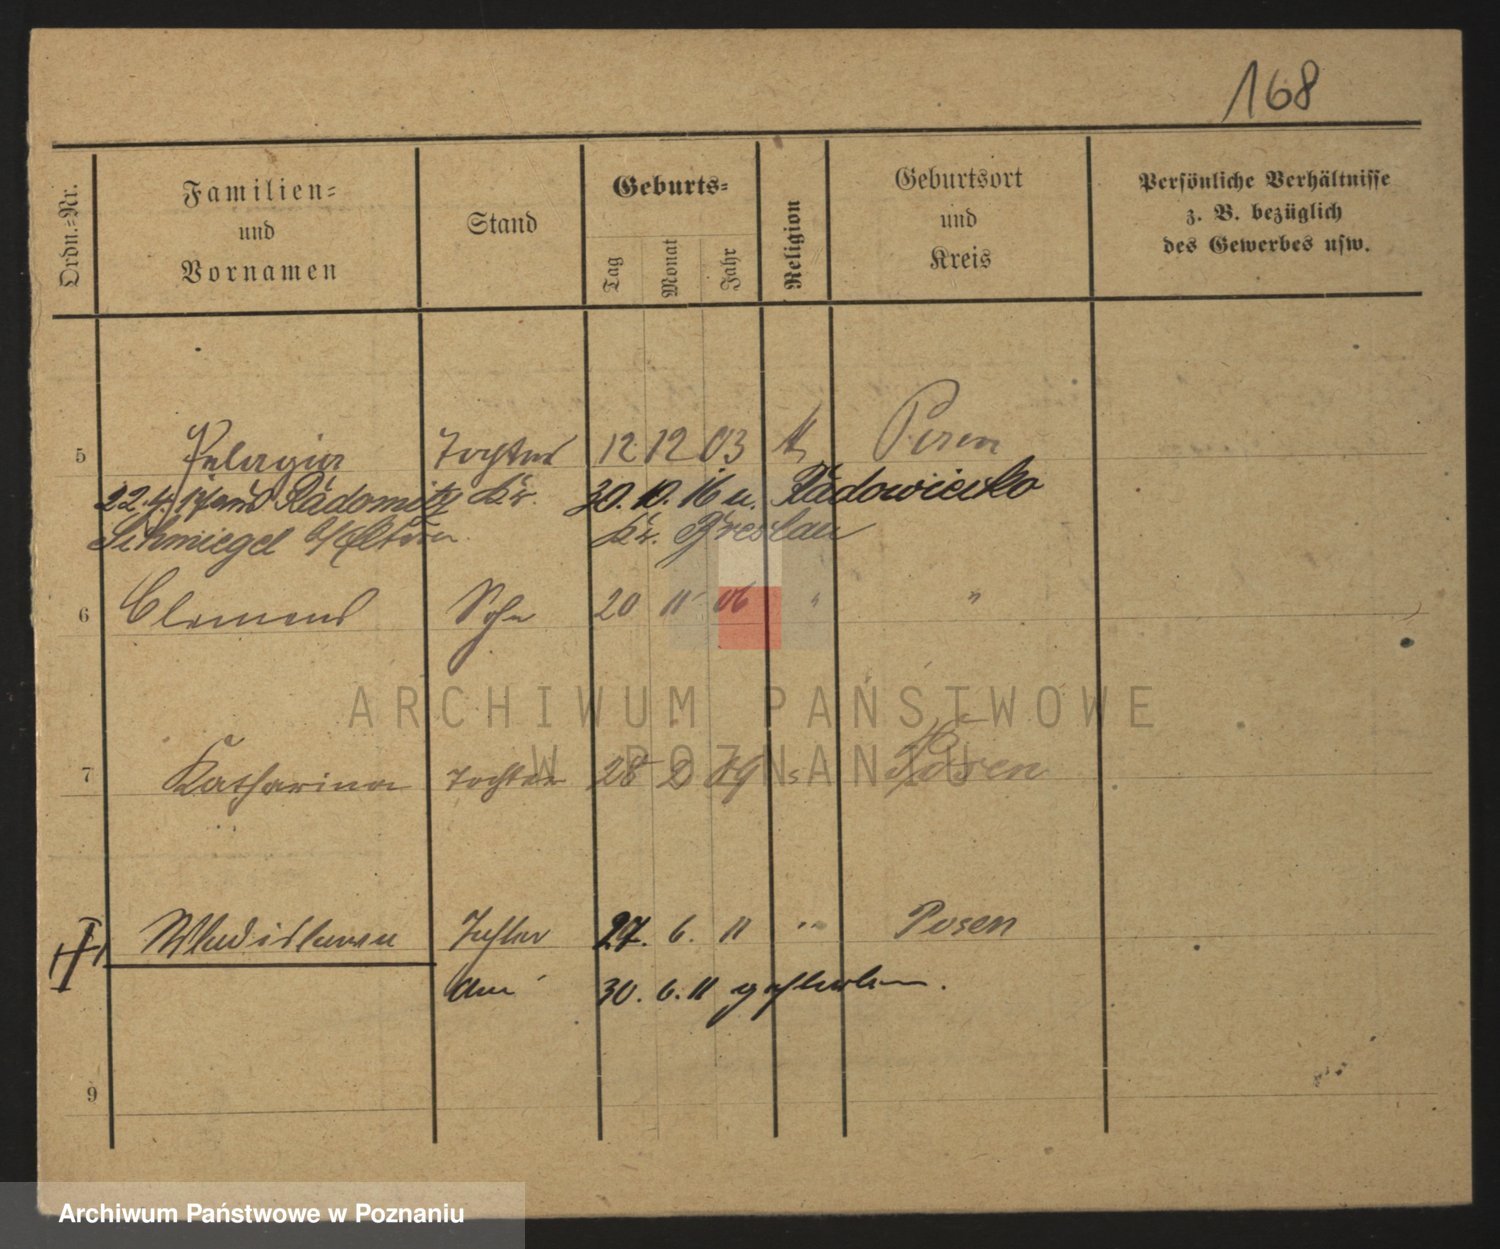 168
Ordn.=Nr.
Familien=
und
Vornamen
Stand
Geburts=
Tag
Monat
Jahr
Religion
Geburtsort
und
Kreis
Persönliche Verhältnisse
z. B. bezüglich
des Gewerbes usw.
5 Pelagia Tochter 12 12 03 k Posen
22.4.17 aus Radomitz Kr. 30.10.16 n. Radowienko
Schmiegel Eltern Kr. Breslau
6 Clemens Sohn 20 11 06 " "
ARCHIWUM PAŃSTWOWE
W POZNANIU
7 Katharina Tochter 28 2 09 Posen
Wladislawa Tochter 27. 6. 11 " Posen
Am 30. 6. 11 gestorben.
9
Archiwum Państwowe w Poznaniu